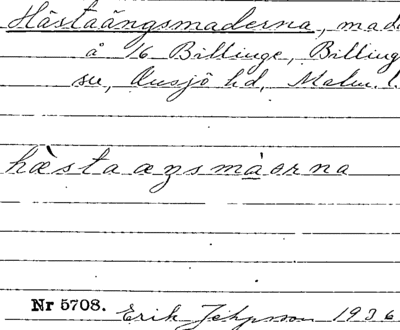 Hästaängsmaderna, mad
å 1/6 Billinge, Billing
sn, Onsjö hd, Malm. l.
hæ̀staæŋsmàərna
Nr 5708. Erik Jeppsson 1936